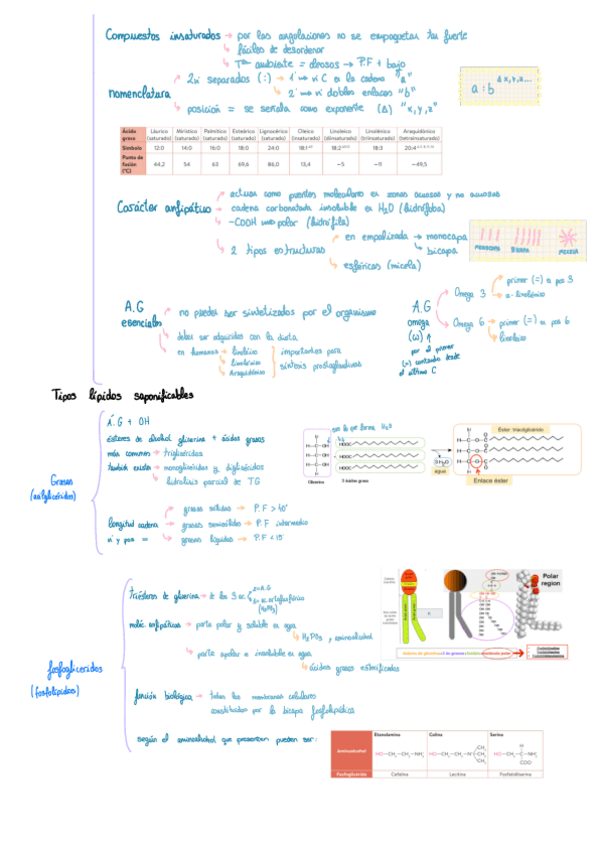 Compuestos insaturados → por las angulaciones no se empaquetan tan fuerte
→ fáciles de desordenar
→ Tª ambiente = oleosos → P.F + bajo
nomenclatura
→ 2 nº separados (:) → 1º nº C en la cadena "a"
→ 2º nº dobles enlaces "b"
→ posición = se señala como exponente (Δ) "x,y,z"
a : b Δ x,y,z...
Ácido graso Láurico (saturado) Mirístico (saturado) Palmítico (saturado) Esteárico (saturado) Lignocérico (saturado) Oleico (insaturado) Linoleico (diinsaturado) Linolénico (triinsaturado) Araquidónico (tetrainsaturado)
Símbolo 12:0 14:0 16:0 18:0 24:0 18:1 18:2 18:3 20:4
Punto de fusión (ºC) 44,2 54 63 69,6 86,0 13,4 –5 –11 –49,5
Carácter anfipático
→ actúan como puentes moleculares en zonas acuosas y no acuosas
→ cadena carbonatada insoluble en H₂O (hidrófoba)
→ -COOH polar (hidrófila)
→ 2 tipos estructuras
→ en empalizada → monocapa
→ bicapa
→ esféricas (micela)
MONOCAPA BICAPA MICELA
A.G esenciales
→ no pueden ser sintetizados por el organismo
→ deben ser adquiridos con la dieta
→ en humanos → linoléico
linolénico
Araquidónico
importantes para
síntesis prostaglandinas
A.G omega (ω)
→ Omega 3 → primer (=) en pos 3
→ α-linolénico
→ Omega 6 → primer (=) en pos 6
→ linoleico
por el primer
(=) contando desde
el último C
Tipos lípidos saponificables
Grasas
(acilglicéridos)
A.G + OH
ésteres de alcohol glicerina + ácidos grasos
más comunes → triglicéridos
también existen → monoglicéridos y diglicéridos
↳ hidrólisis parcial de TG
longitud cadena
nº y pos =
→ grasas sólidas → P.F > 40º
→ grasas semisólidas → P.F intermedio
→ grasas líquidas → P.F < 15º
Glicerina
3 ácidos grasos
3 H₂O
agua
Éster: triacilglicérido
Enlace éster
fosfoglicéridos
(fosfolípidos)
triésteres de glicerina → de los 3 ac. 2 = A.G
1 = ac ortofosfórico
(H₃PO₄)
moléc. anfipáticas → parte polar y soluble en agua
↳ H₃PO₄, aminoalcohol
→ parte apolar e insoluble en agua
↳ ácidos grasos esterificados
función biológica → todas las membranas celulares
constituidas por la bicapa fosfolipídica
según el aminoalcohol que presentan pueden ser:
Polar region
Etanolamina Colina Serina
Aminoalcohol
HO–CH₂–CH₂–NH₂
Fosfoglicérido Cefalina Lecitina Fosfatidilserina